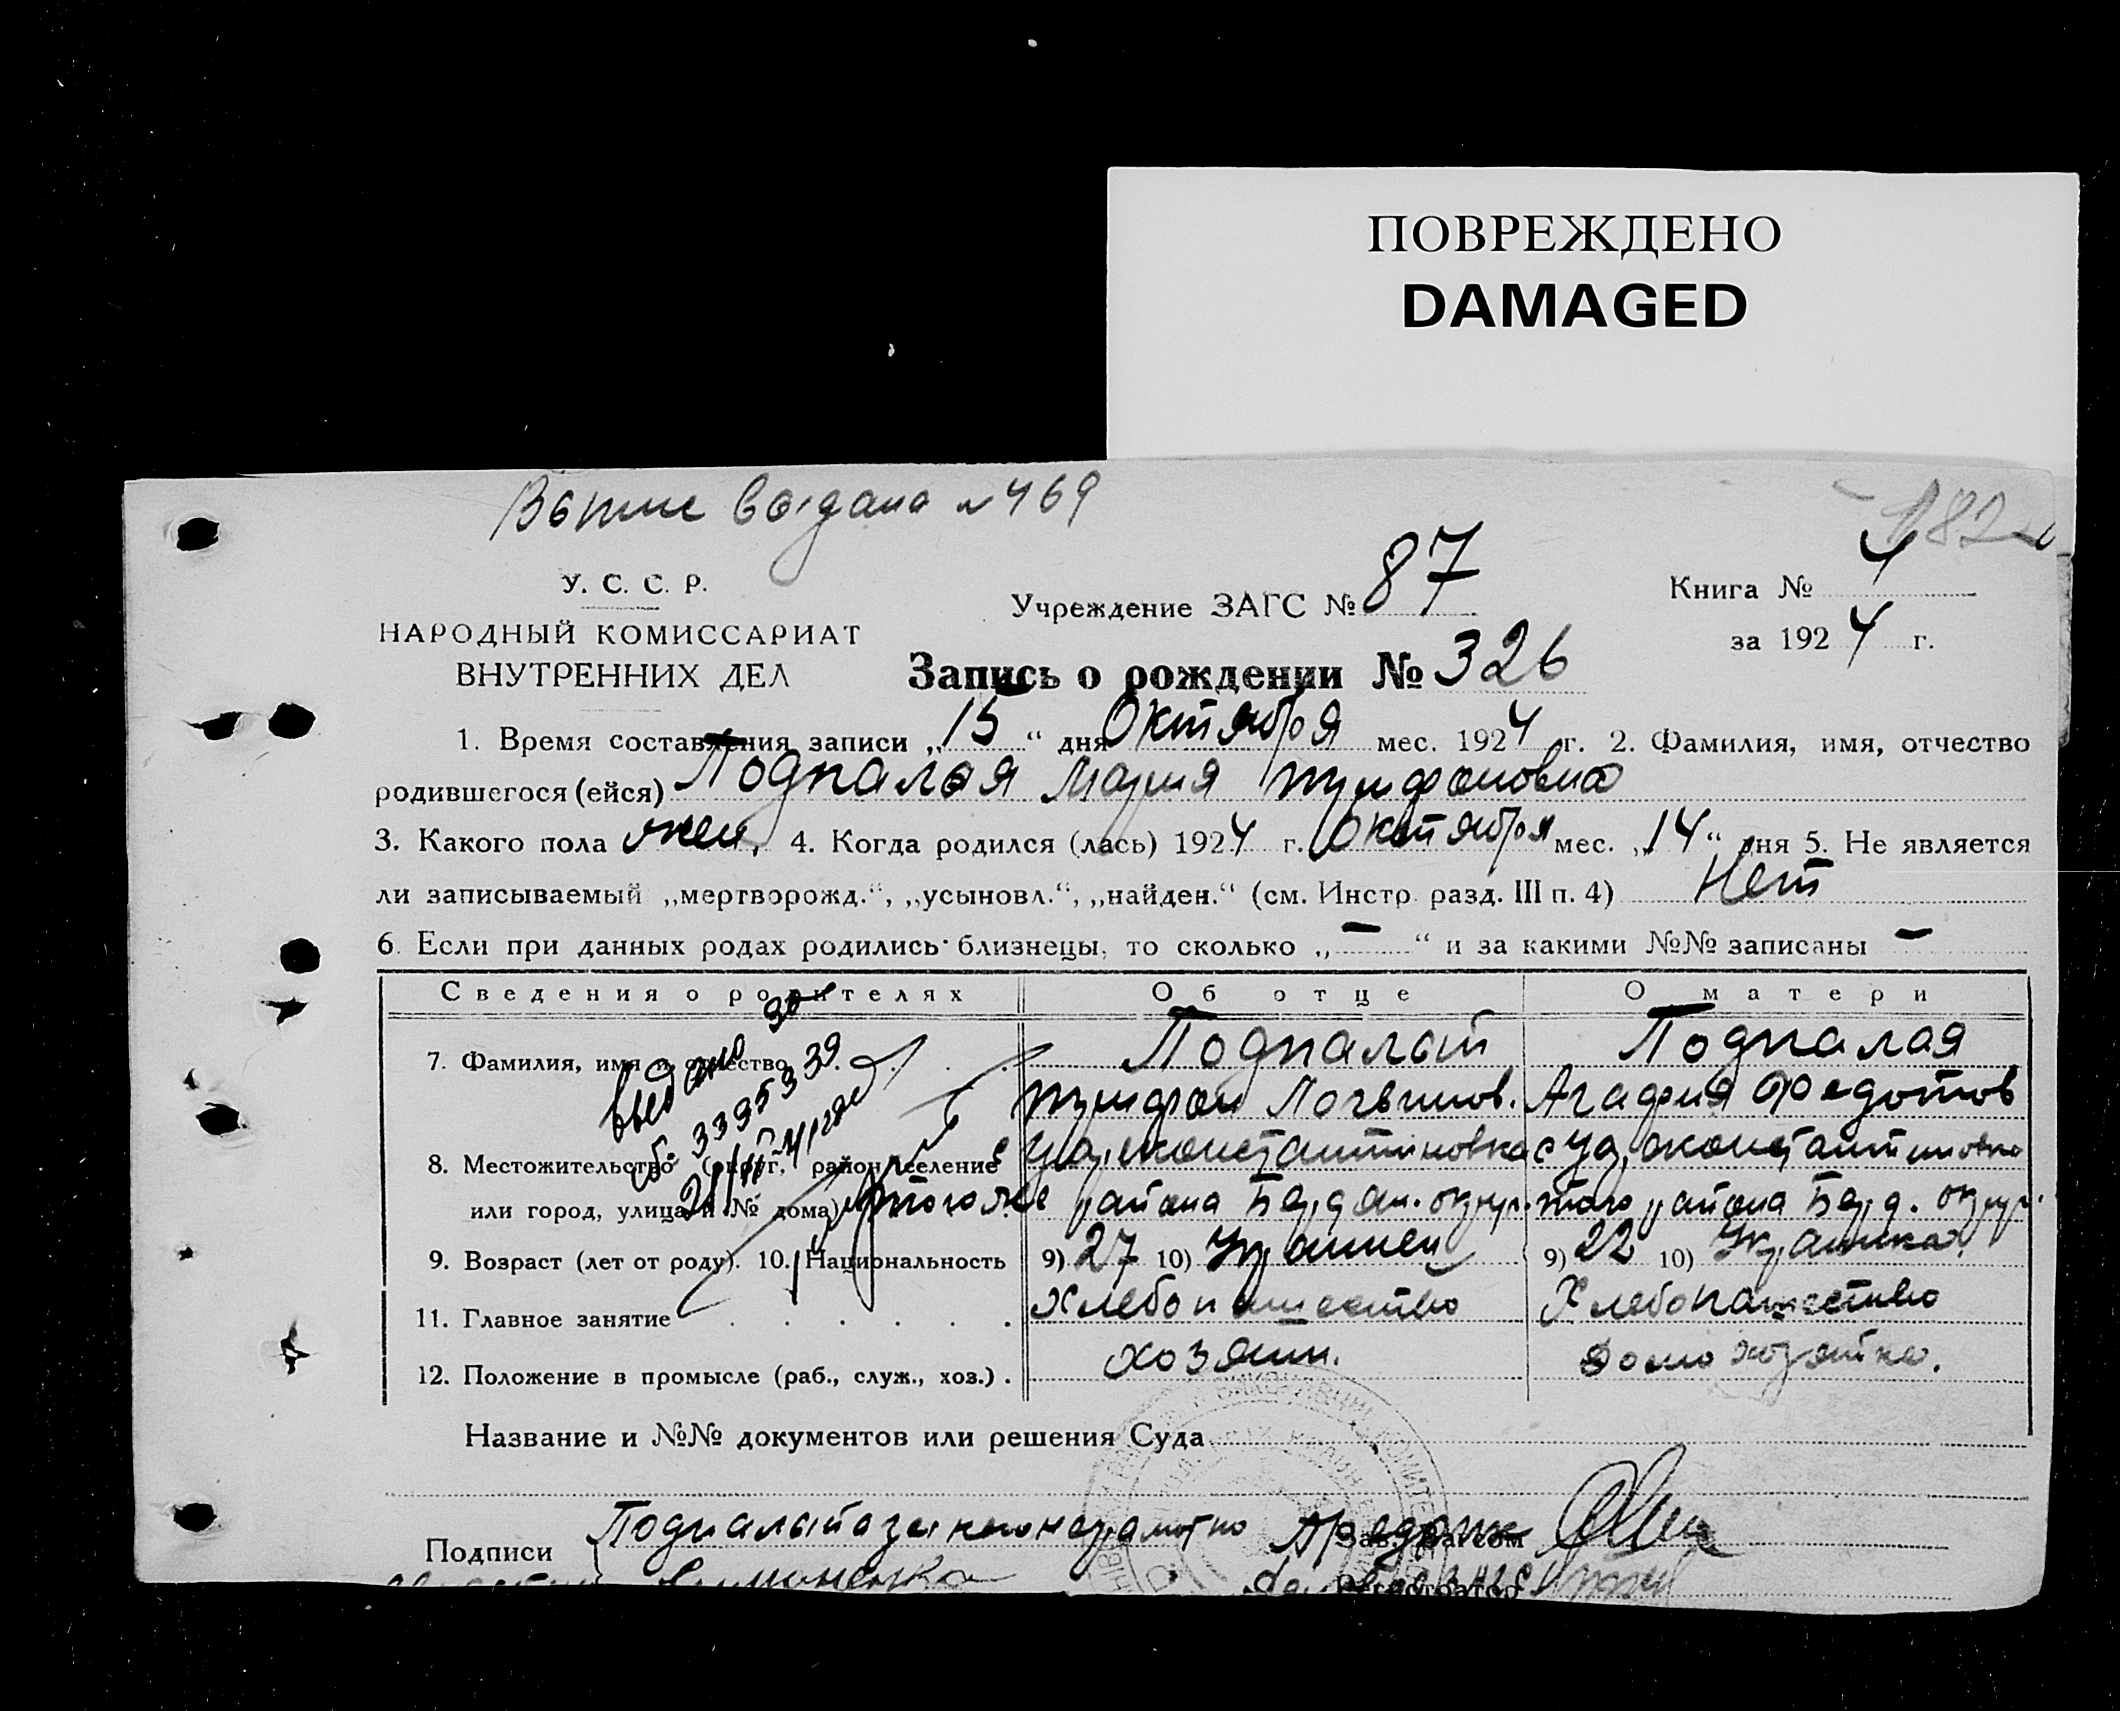 ПОВРЕЖДЕНО
DAMAGED
выдана № 469
У. С. С. Р.
НАРОДНЫЙ КОМИССАРИАТ
ВНУТРЕННИХ ДЕЛ
Учреждение ЗАГС № 87
Книга № 4
за 1924 г.
Запись о рождении № 326
1. Время составления записи „15“ дня Октября мес. 1924 г. 2. Фамилия, имя, отчество
родившегося (ейся) Подпалая Мария Трифоновна
3. Какого пола жен. 4. Когда родился (лась) 1924 г. Октября мес. „14“ дня 5. Не является
ли записываемый „мертворожд.“, „усыновл.“, „найден.“ (см. Инстр. разд. III п. 4) Нет
6. Если при данных родах родились близнецы, то сколько „—“ и за какими №№ записаны —
Сведения о родителях Об отце О матери
7. Фамилия, имя и отчество Подпалый Подпалая
Трифон Логвинов. Агафия Федотов
8. Местожительство (округ, район, селение Константиновка Константиновка
или город, улица и № дома) того же района Бердян. округ. того района Берд. округ.
9. Возраст (лет от роду). 10. Национальность 9) 27 10) Украинец 9) 22 10) Украинка
11. Главное занятие Хлебопашество Хлебопашество
12. Положение в промысле (раб., служ., хоз.) . хозяин. домохозяйка.
Название и №№ документов или решения Суда
Подписи Подпалый а за него неграмотно Зав. Загсом
Регистратор